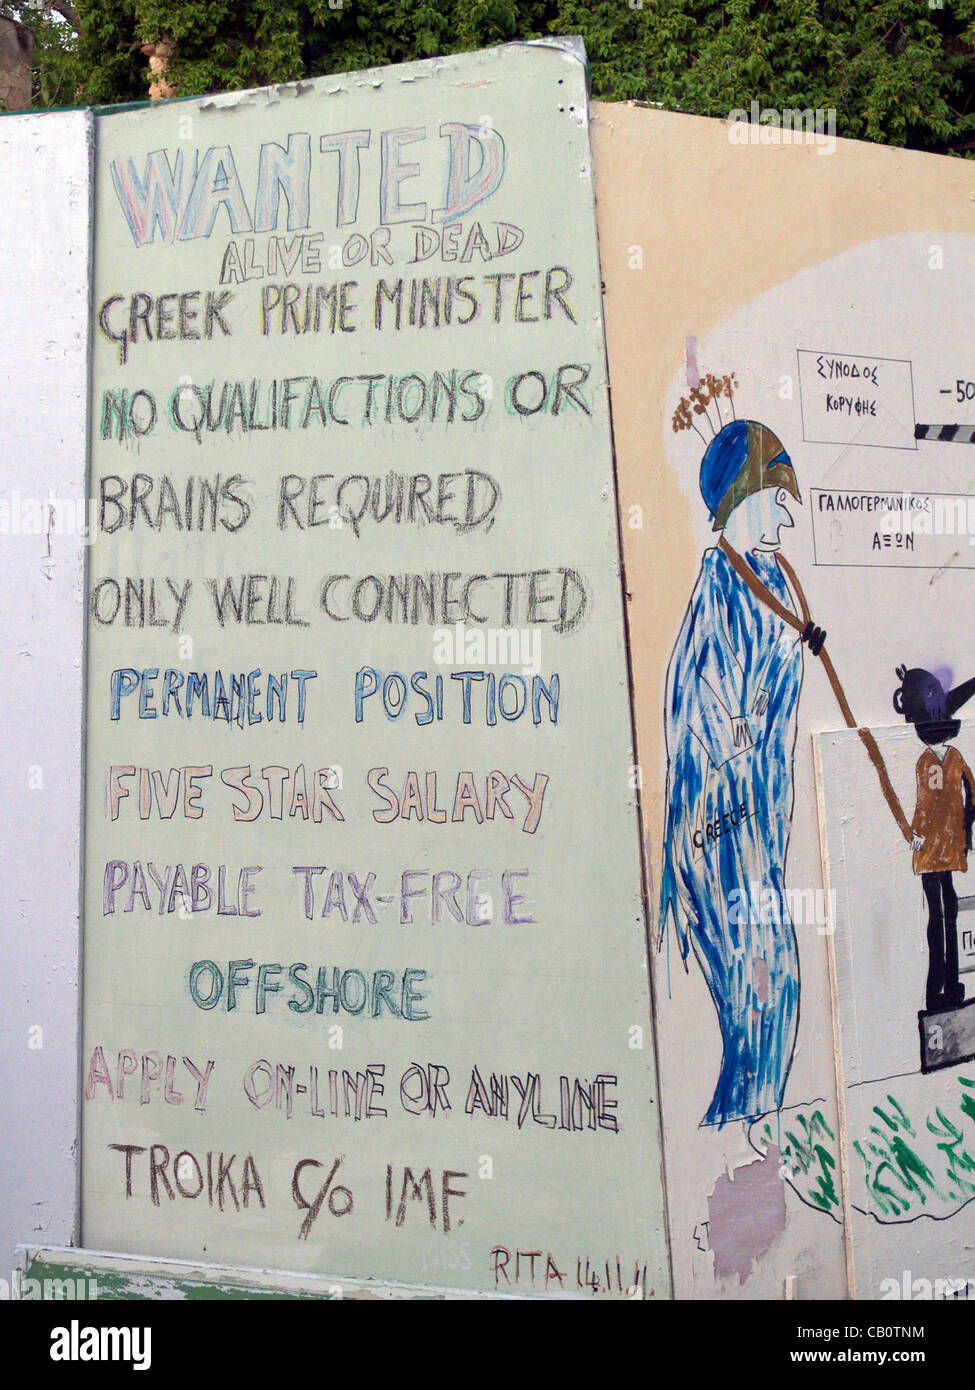 WANTED
ALIVE OR DEAD
GREEK PRIME MINISTER
NO QUALIFACTIONS OR
BRAINS REQUIRED,
ONLY WELL CONNECTED
PERMANENT POSITION
FIVE STAR SALARY
PAYABLE TAX-FREE
OFFSHORE
APPLY ON-LINE OR ANYLINE
TROIKA C/O IMF.
RITA 14.11.11.
ΣΥΝΟΔΟΣ
ΚΟΡΥΦΗΣ
-50
ΓΑΛΛΟΓΕΡΜΑΝΙΚΟΣ
ΑΞΩΝ
GREECE
alamy
Image ID: CB0TNM
www.alamy.com